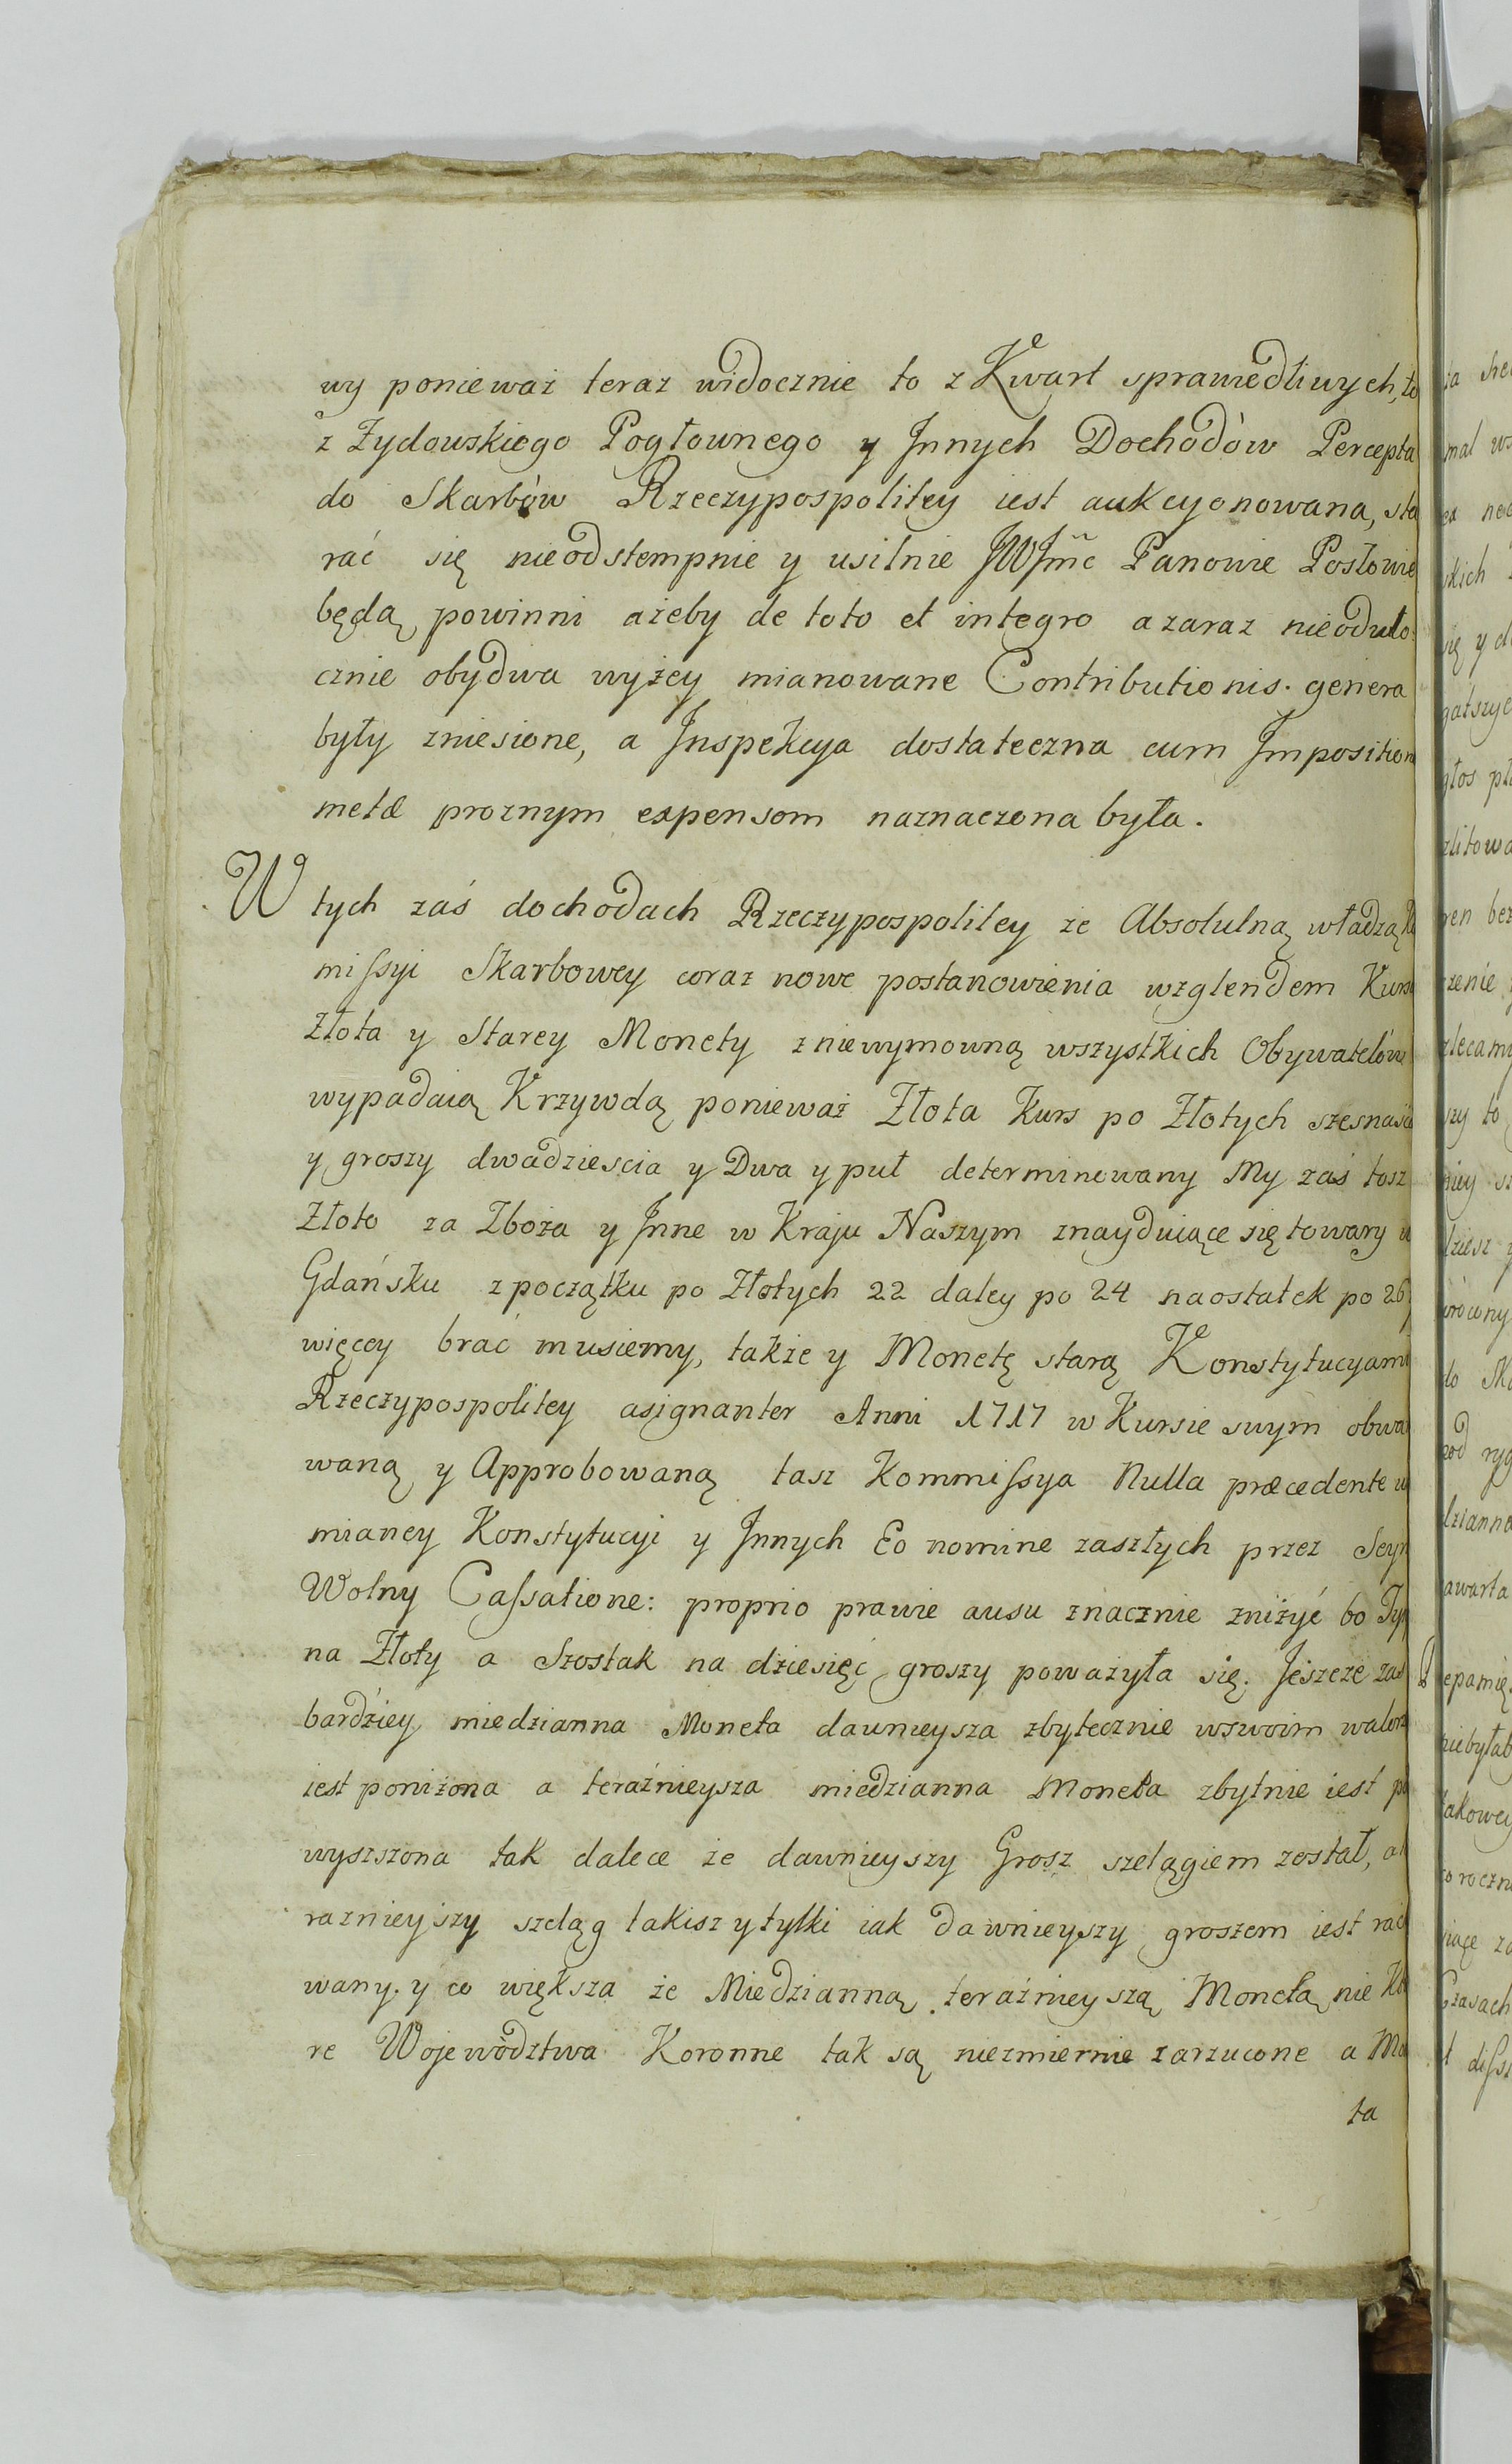 wy ponieważ teraz widocznie to z Kwart sprawiedliwych, to
z Żydowskiego Pogłownego y Jnnych Dochodów Percepta
do Skarbów Rzeczypospolitey iest aukcyonowana, sta
rać się nieodstempnie y usilnie JWJmc Panowie Posłowie
będą powinni ażeby de toto et integro a zaraz nieodwło
cznie obydwa wyżey mianowane Contributionis. genera
były zniesione, a Jnspekcya dostateczna cum Jmposition
metæ proznym expensom naznaczona była.
W tych zaś dochodach Rzeczypospolitey że Absolutną władzą
missyi Skarbowey coraz nowe postanowienia wzglendem Kursu
Złota y Starey Monety z niewymowną wszystkich Obywatelów
wypadaią Krzywdą ponieważ Złota Kurs po Złotych szesnaście
y groszy dwadziescia y Dwa y puł determinowany My zaś tosz
Złoto za Zboża y Jnne w Kraju Naszym znayduiące się towary w
Gdańsku z początku po Złotych 22 daley po 24 naostatek po 26
więcey brać musiemy, także y Monetę starą Konstytucyami
Rzeczypospolitey asignanter Anni 1717 w Kursie swym obwa
waną y Approbowaną tasz Kommissya Nulla præcedente w
mianey Konstytucyi y Jnnych Eo nomine zaszłych przez Seym
Wolny Cassatione: proprio prawie ausu znacznie zniżyć bo Tynf
na Złoty a Szostak na dziesięć groszy poważyła się. Jeszcze zaś
bardziey miedzianna Moneta dawnieysza zbytecznie wswoim walorze
iest poniżona a teraźnieysza miedzianna Moneta zbytnie iest po
wyszszona tak dalece że dawnieyszy Grosz szelągiem został, a
raznieyszy szeląg takisz y tylki iak dawnieyszy groszem iest rach
wany. y co większa że Miedzianną teraźnieyszą Monetą nie Któ
re Wojewòdztwa Koronne tak są niezmiernie zarzucone a Mo
ta